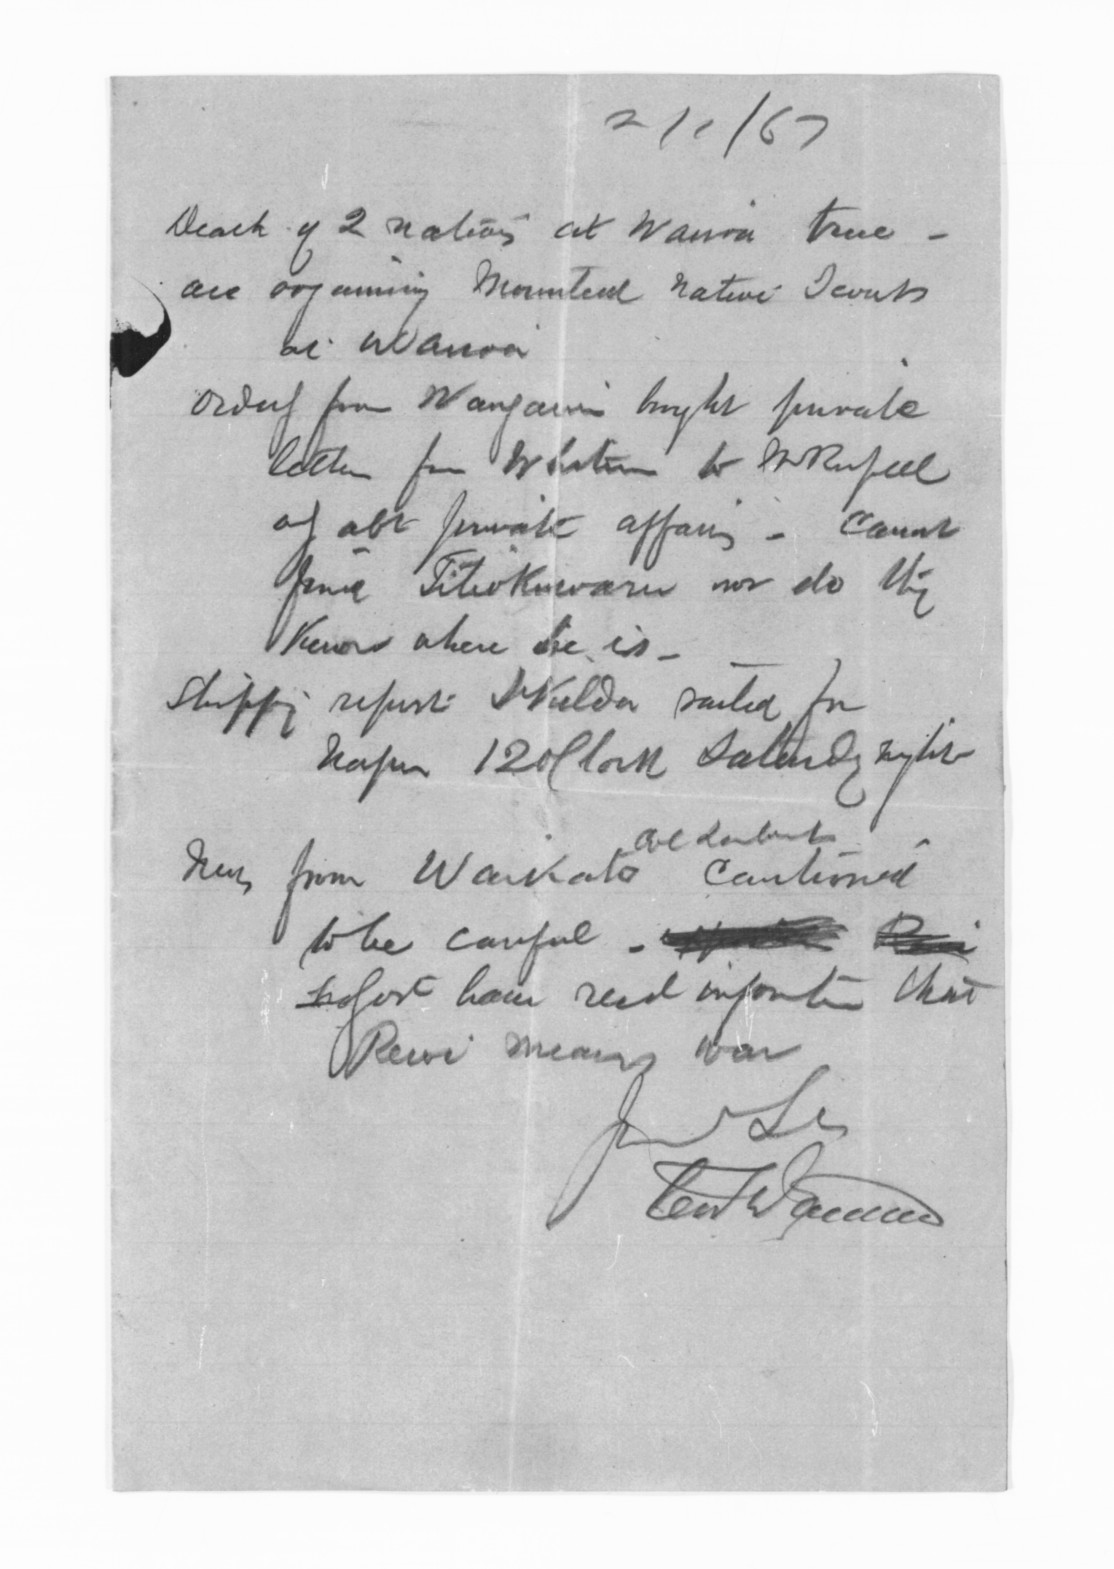 2/1/67
Death of 2 natives at Wairoa true -
are organising Mounted Native Scouts
at Wairoa
from Wanganui brght private
letter from to
abt private affairs - Cannot
find Titokowaru nor do they
know where he is -
Shippg report St Kilda sailed for
Napier 12 oClock Saturdy night
News from Waikato Cautioned
to be careful - Rewi
have recd informtn that
Rewi means war